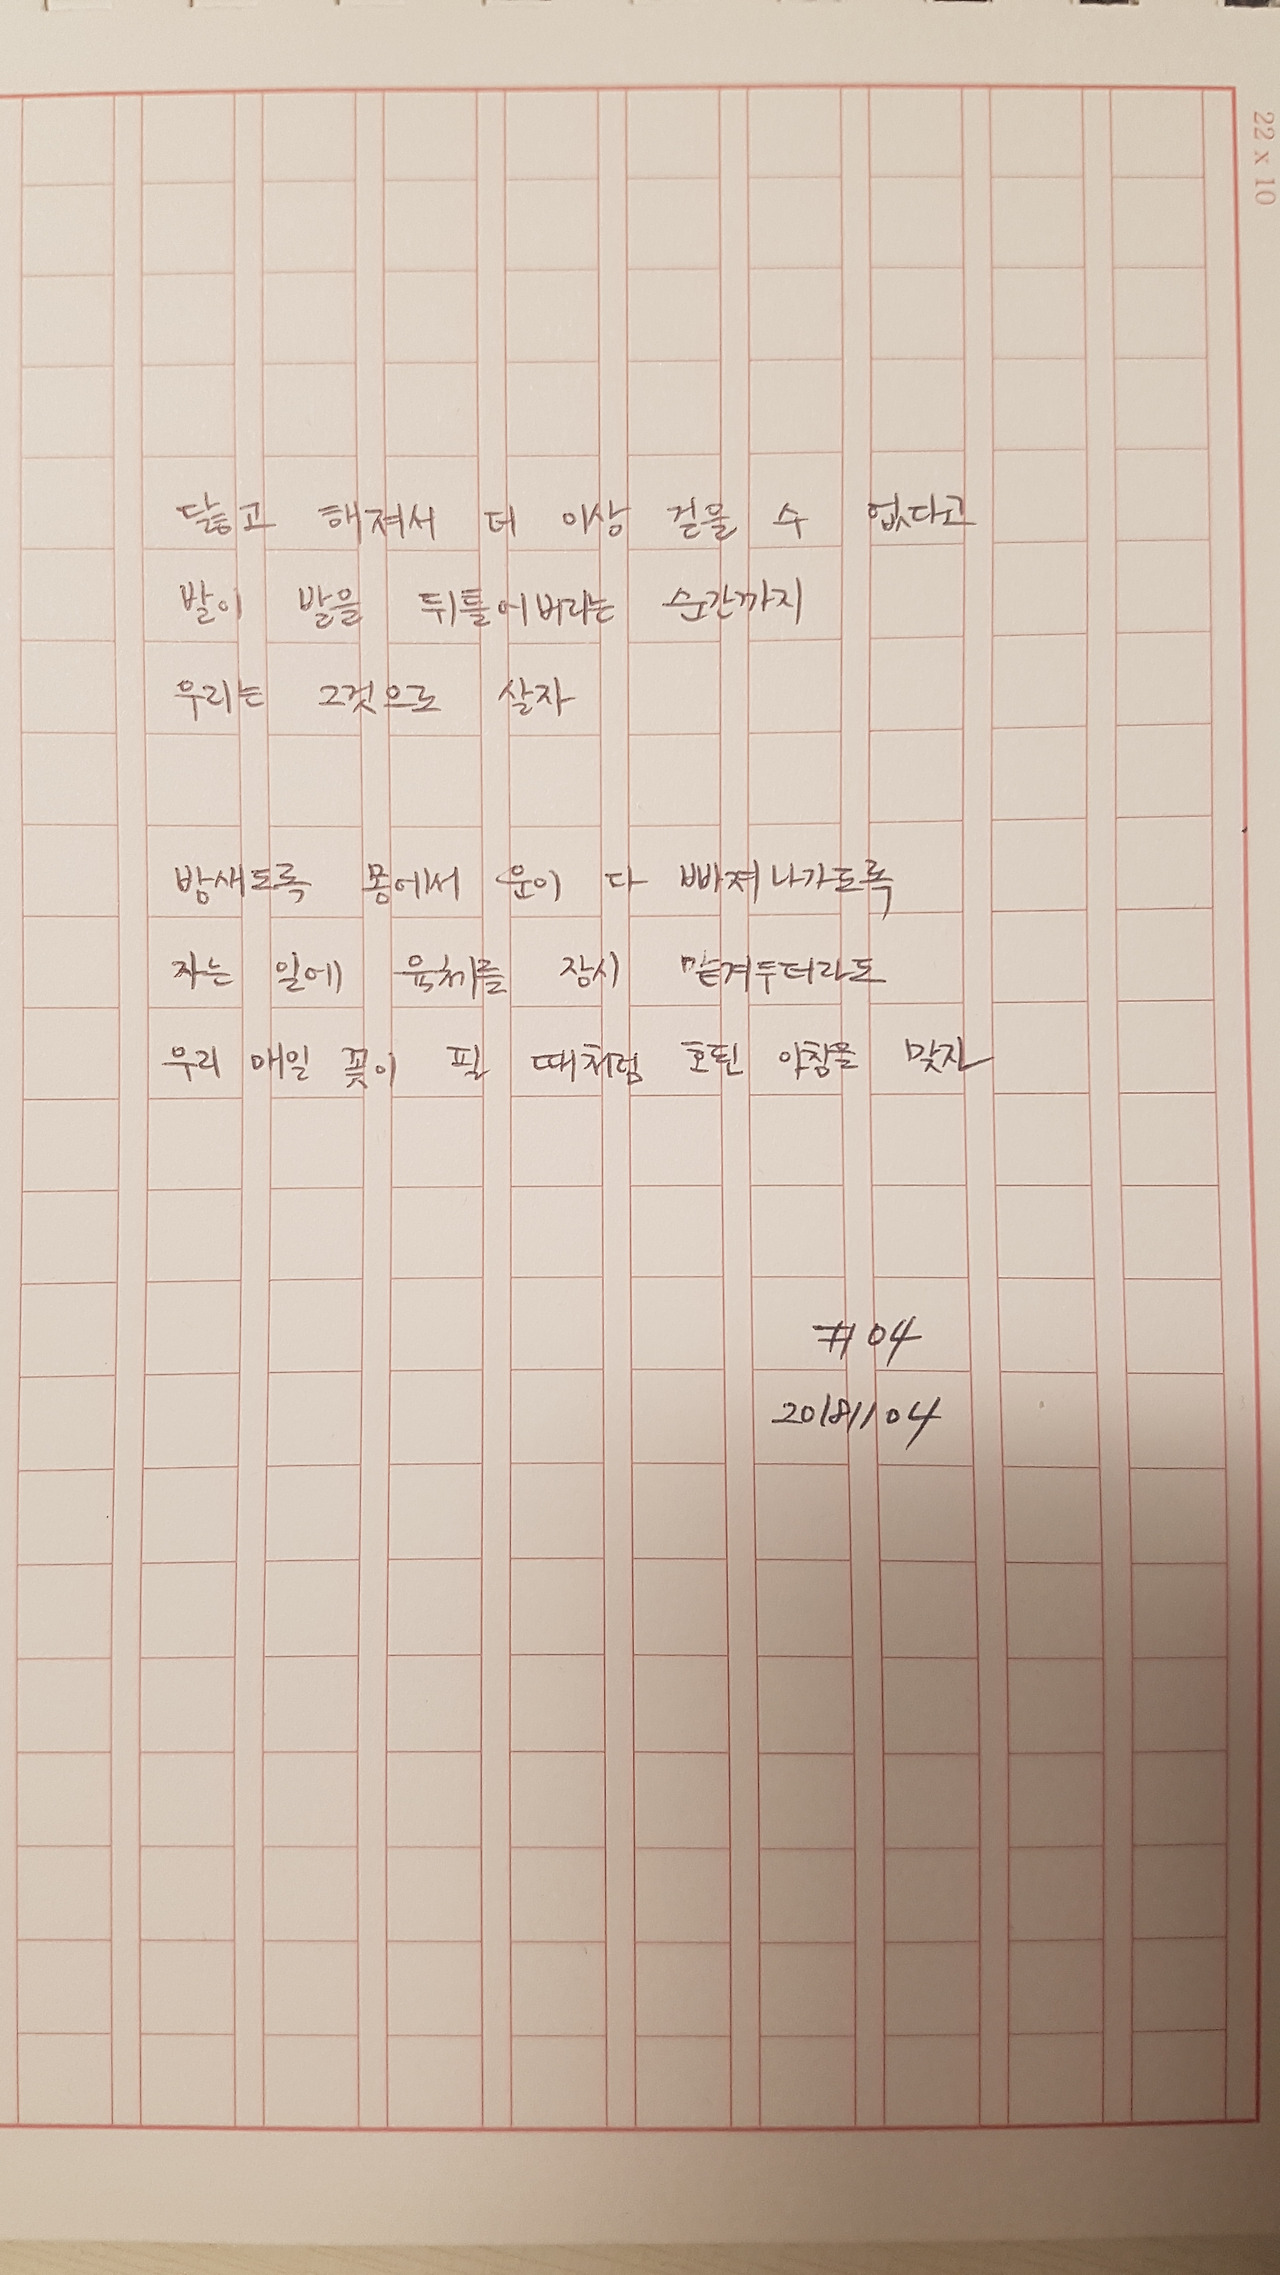 22 x 10
닳고 해져서 더 이상 걷을 수 없다고
발이 발을 뒤틀어버리는 순간까지
우리는 그것으로 살자
밤새도록 몸에서 운이 다 빠져나가도록
자는 일에 육체를 잠시 맡겨두더라도
우리 매일 꽃이 필 때처럼 호된 아침을 맞자
#04
20181104